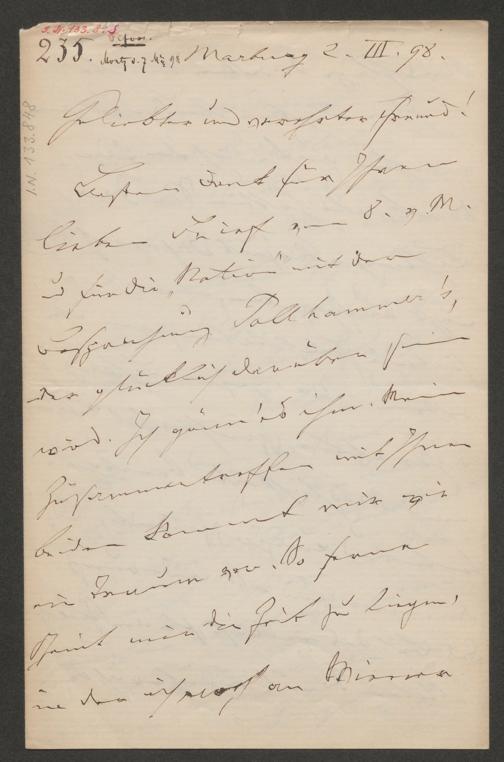 I.N. 133.848
235. Marburg 2. III. 98.
Geliebter und verehrter Freund!
Besten Dank für Ihren
lieben Brief vom 8. v. M.
und für die „Nation" mit der
Besprechung Pollhammer's,
der glücklich darüber sein
wird. Ich gönn' es ihm. Mein
Zusammentreffen mit Ihnen
beiden kommt mir wie
ein Traum vor. So ferne
scheint mir die Zeit zu liegen,
in der ich noch an Wiener